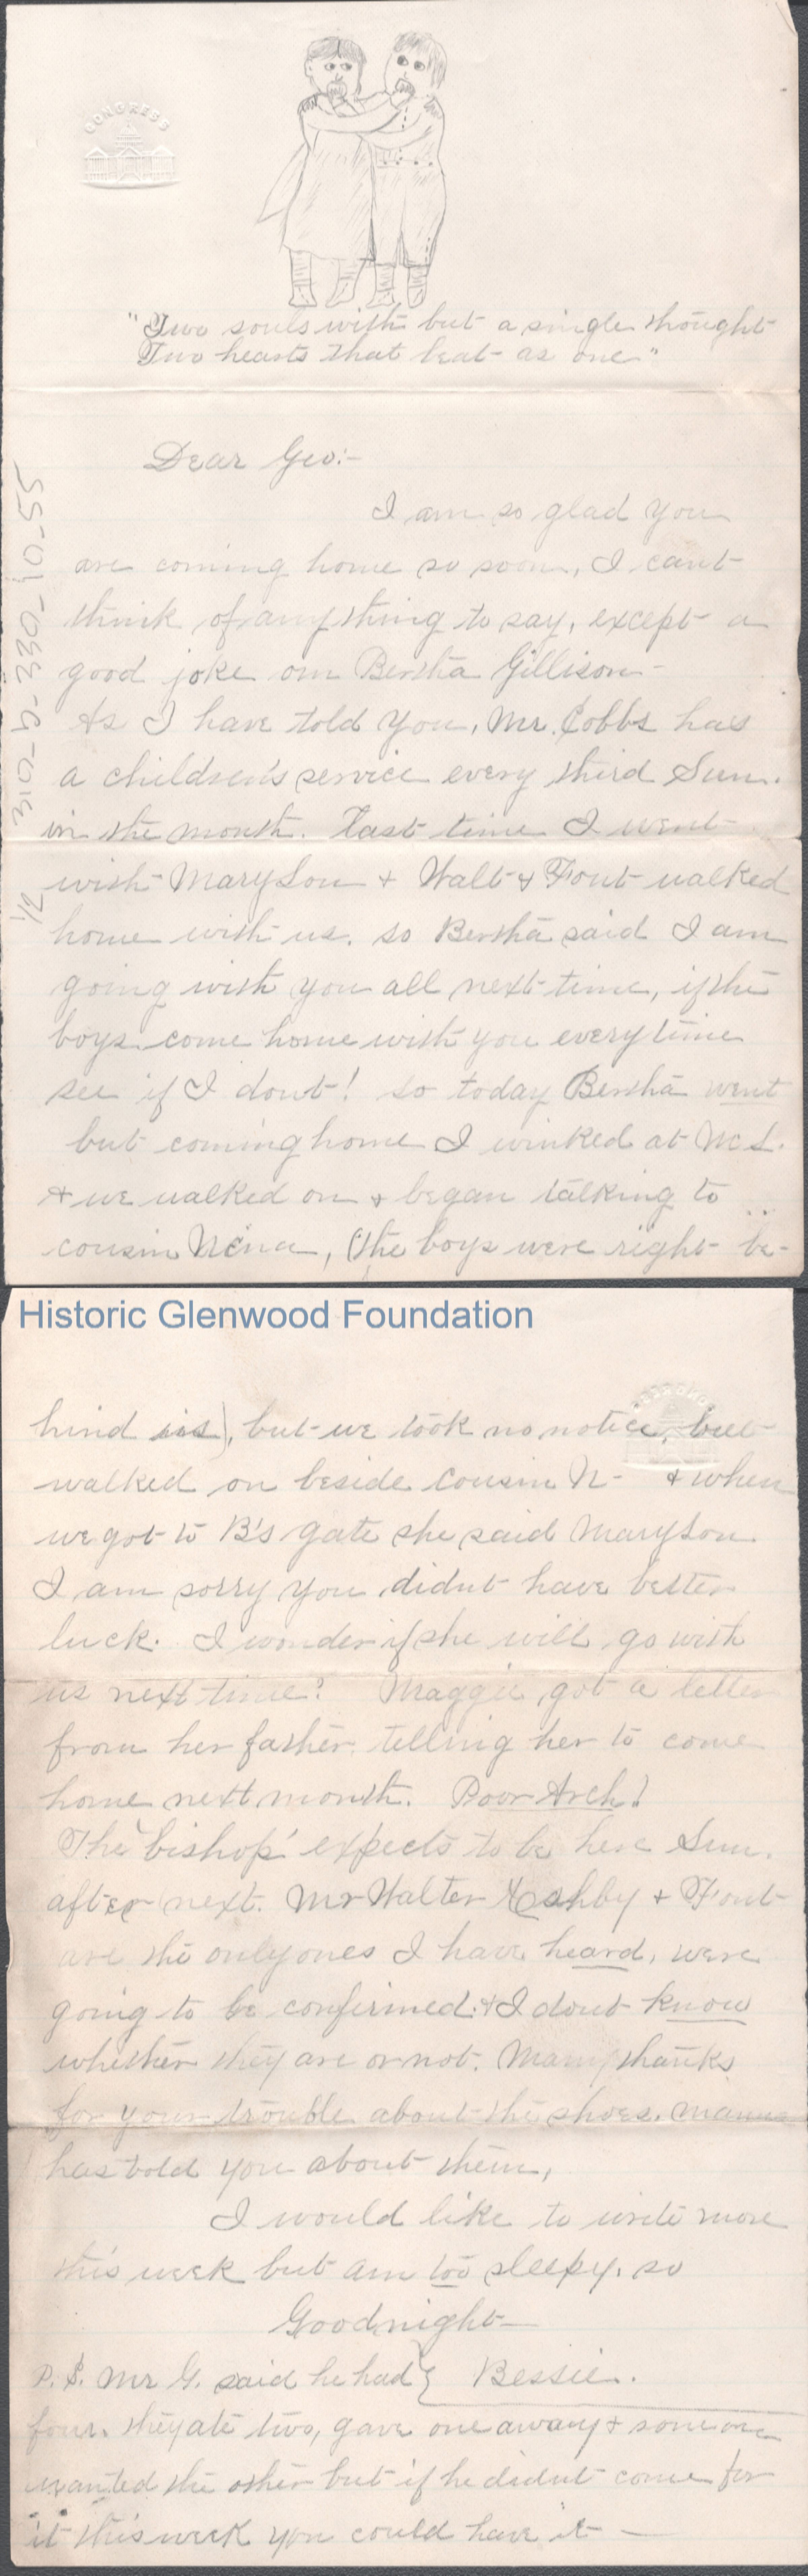 CONGRESS
"Two souls with but a single thought
Two hearts that beat as one"
Dear Geo:-
I am so glad you
are coming home so soon, I cant
think of anything to say, except a
good joke on Bertha Gillison-
As I have told you, Mr. Cobbs has
a children's service every third Sun.
in the month. Last time I went
with Mary Lou + Walt & Font walked
home with us. so Bertha said I am
going with you all next time, if the
boys come home with you every time
see if I dont! so today Bertha went
but coming home I winked at M L.
+ we walked on + began talking to
cousin Nena, (the boys were right be-
310-9-330-10-55
1/2
Historic Glenwood Foundation
hind us), but we took no notice, but
walked on beside cousin N- & when
we got to B's gate she said Mary Lou
I am sorry you didnt have better
luck. I wonder if she will go with
us next time? Maggie got a letter
from her father telling her to come
home next month. Poor Arch!
The 'bishop' expects to be here Sun.
after next. Mr Walter Ashby + Font
are the only ones I have heard, were
going to be confirmed. & I dont know
whether they are or not. Many thanks
for your trouble about the shoes. mama
has told you about them,
I would like to write more
this week but am too sleepy. so
Goodnight-
Bessie.
P. S. Mr G. said he had
four. they ate two, gave one away + some one
wanted the other but if he didnt come for
it this week you could have it -